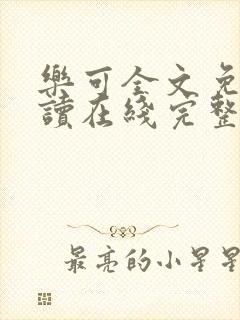 樂可全文免
讀在綫完整
最亮的小星星